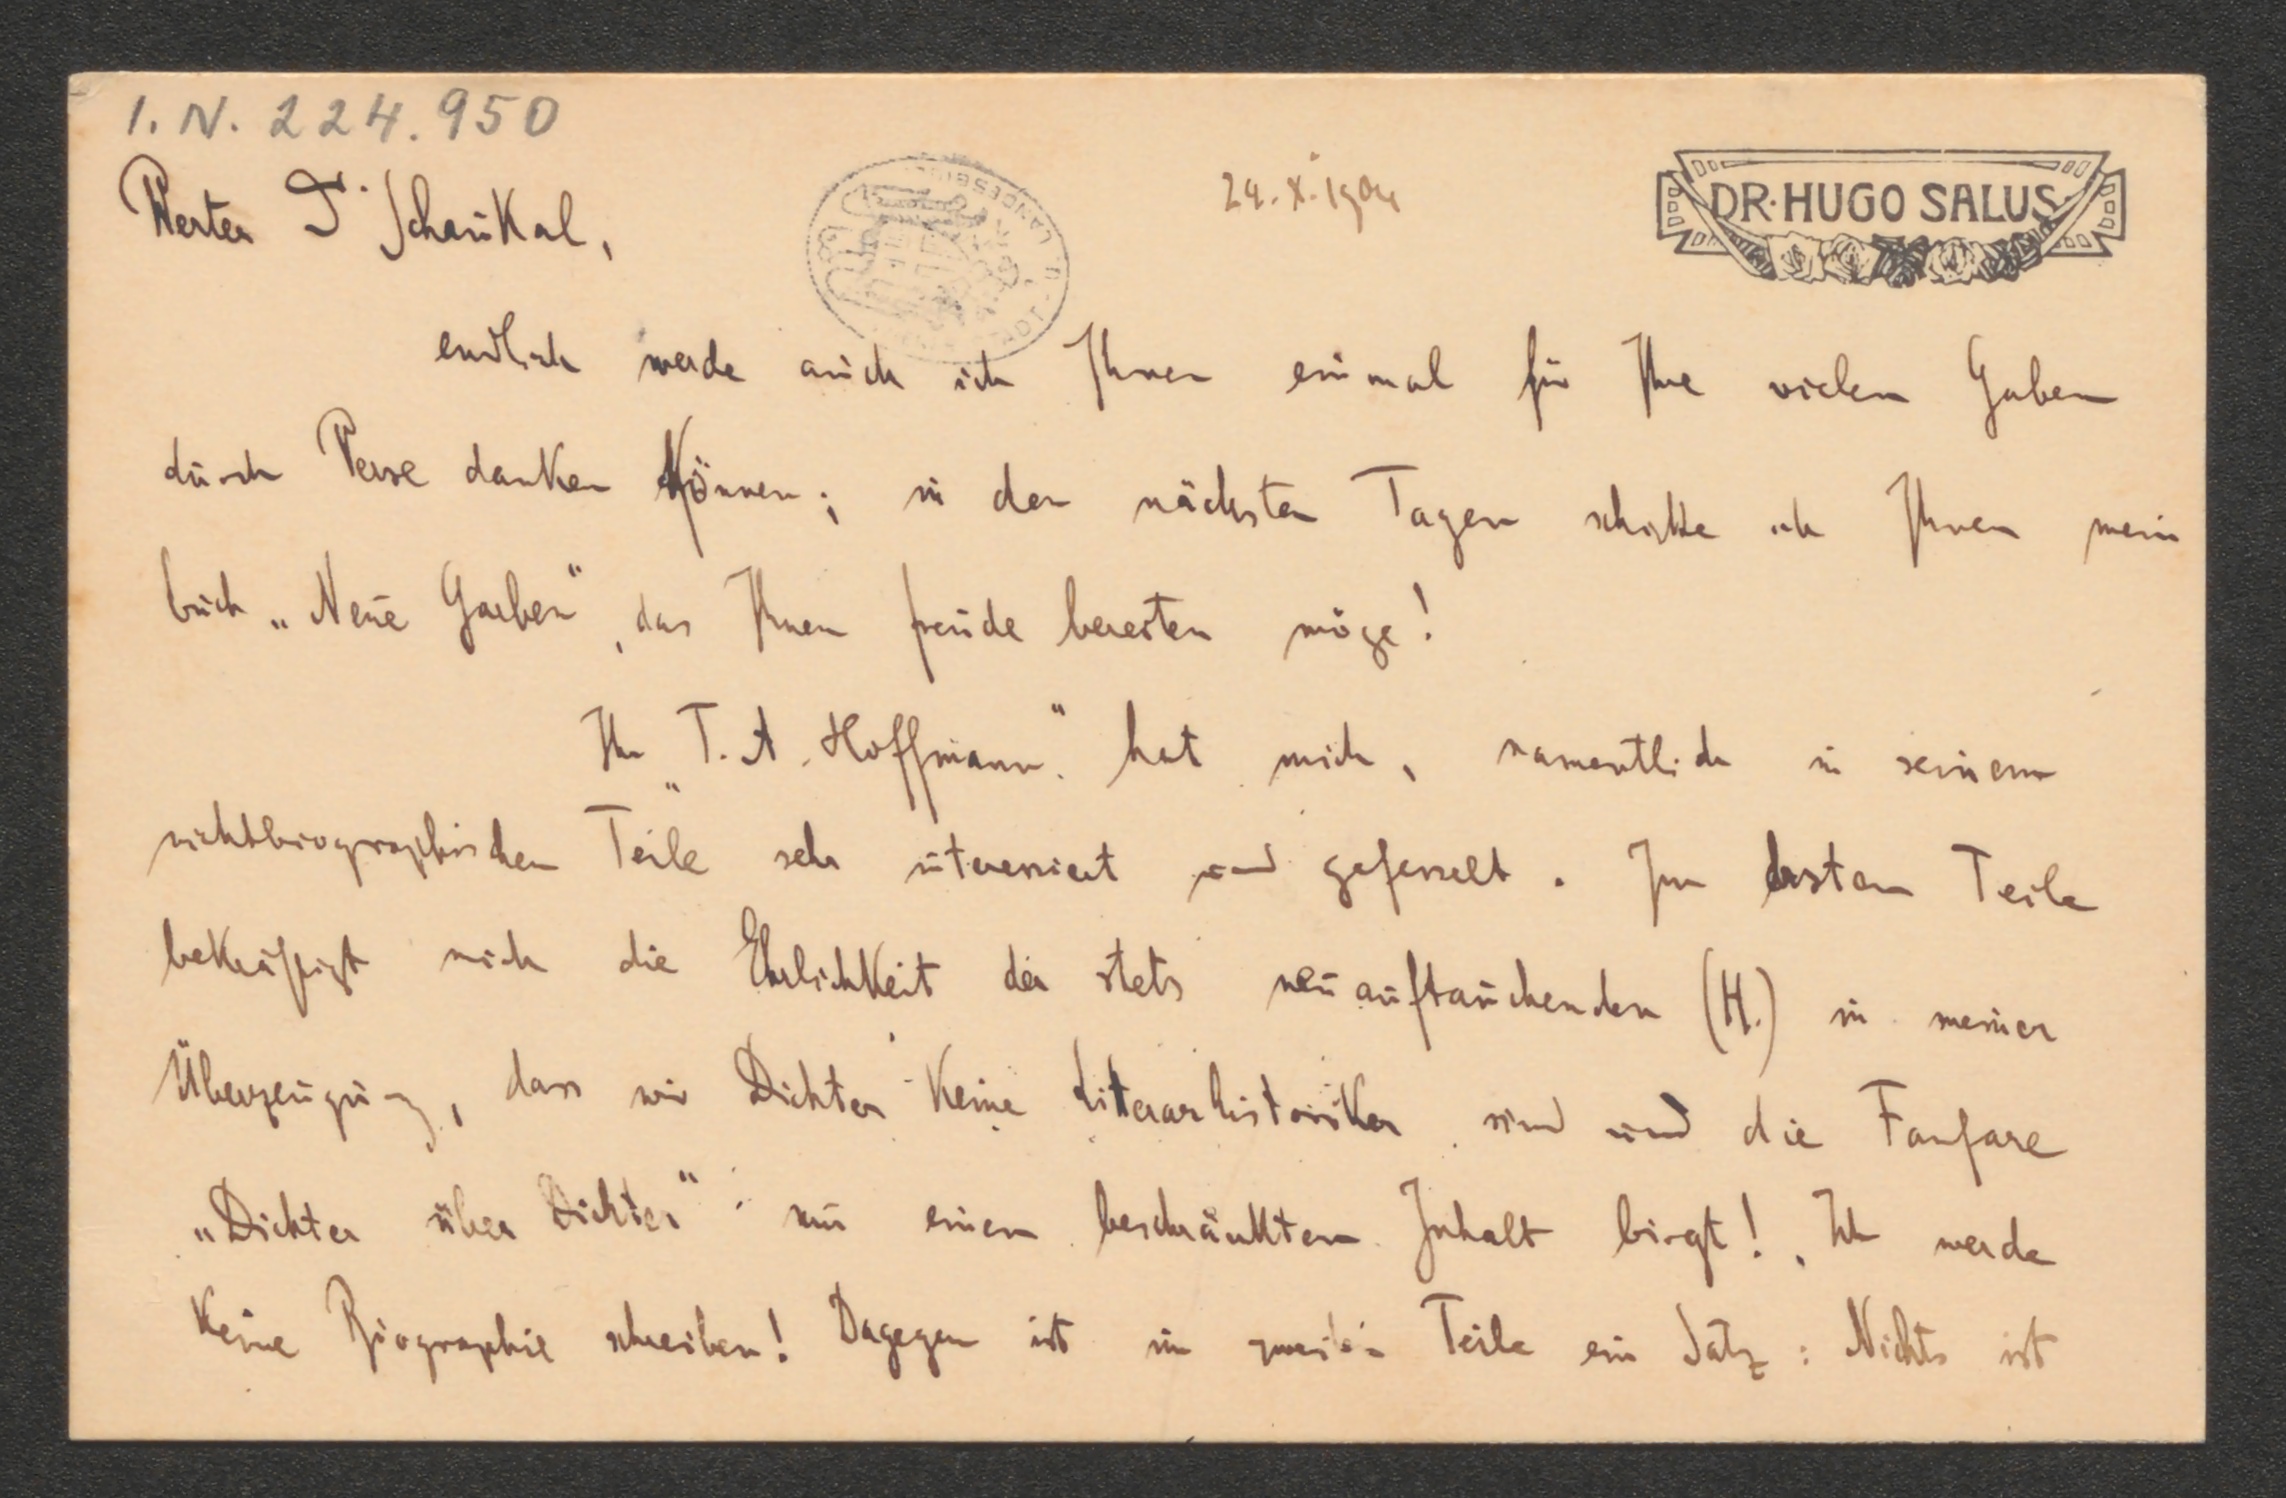 I. N. 224.950
24. X. 1904
DR. HUGO SALUS
Werter Dr Schaukal,
endlich werde auch ich Ihnen einmal für Ihre vielen Gaben
durch Verse danken können; in den nächsten Tagen schicke ich Ihnen mein
buch „Neue Garben“, das Ihnen freude bereiten möge!
Ihr „T. A. Hoffmann“ hat mich, namentlich in seinem
nichtbiographischen Teile sehr interessiert und gefesselt. Im ersten Teile
bekräftigt mich die Ehrlichkeit der stets neuauftauchenden (H.) in meiner
Überzeugung, dass wir Dichter keine Literarhistoriker sind und die Fanfare
„Dichter über Dichter“ nur einen beschränkten Inhalt birgt! Ich werde
keine Biographie schreiben! Dagegen ist im zweiten Teile ein Satz: Nichts ist